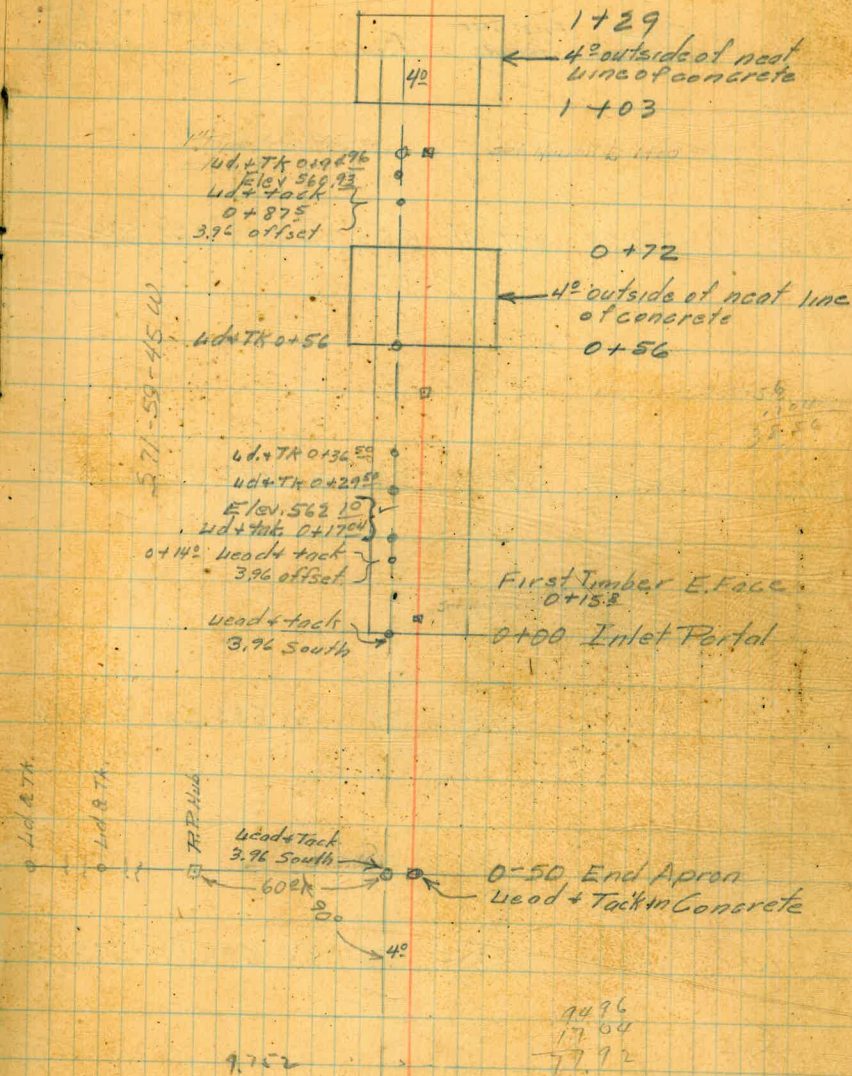 1+29
4º outside of neat
Line of concrete
4º
1+03
Ld. + TK 0+94 96
Elev 560.93
Ld + tack
0+87 5
3.96 offset
0+72
4º outside of neat line
of concrete
Ld + TK 0+56
0+56
S 71-59-45 W
Ld. + TK 0+36 50
Ld + TK 0+29 50
Elev. 562 10
Ld + tak. 0+17 04
0+14º Lead + tack
3.96 offset
First Timber E. Face
0+15 8
Lead + tack
3.96 South
0+00 Inlet Portal
Ld & TK.
Ld & TK.
R.P. Hub
Lead + Tack
3.96 South
60
90
4º
0-50 End Apron
Lead + Tack in Concrete
94 96
17 04
77.92
9.752